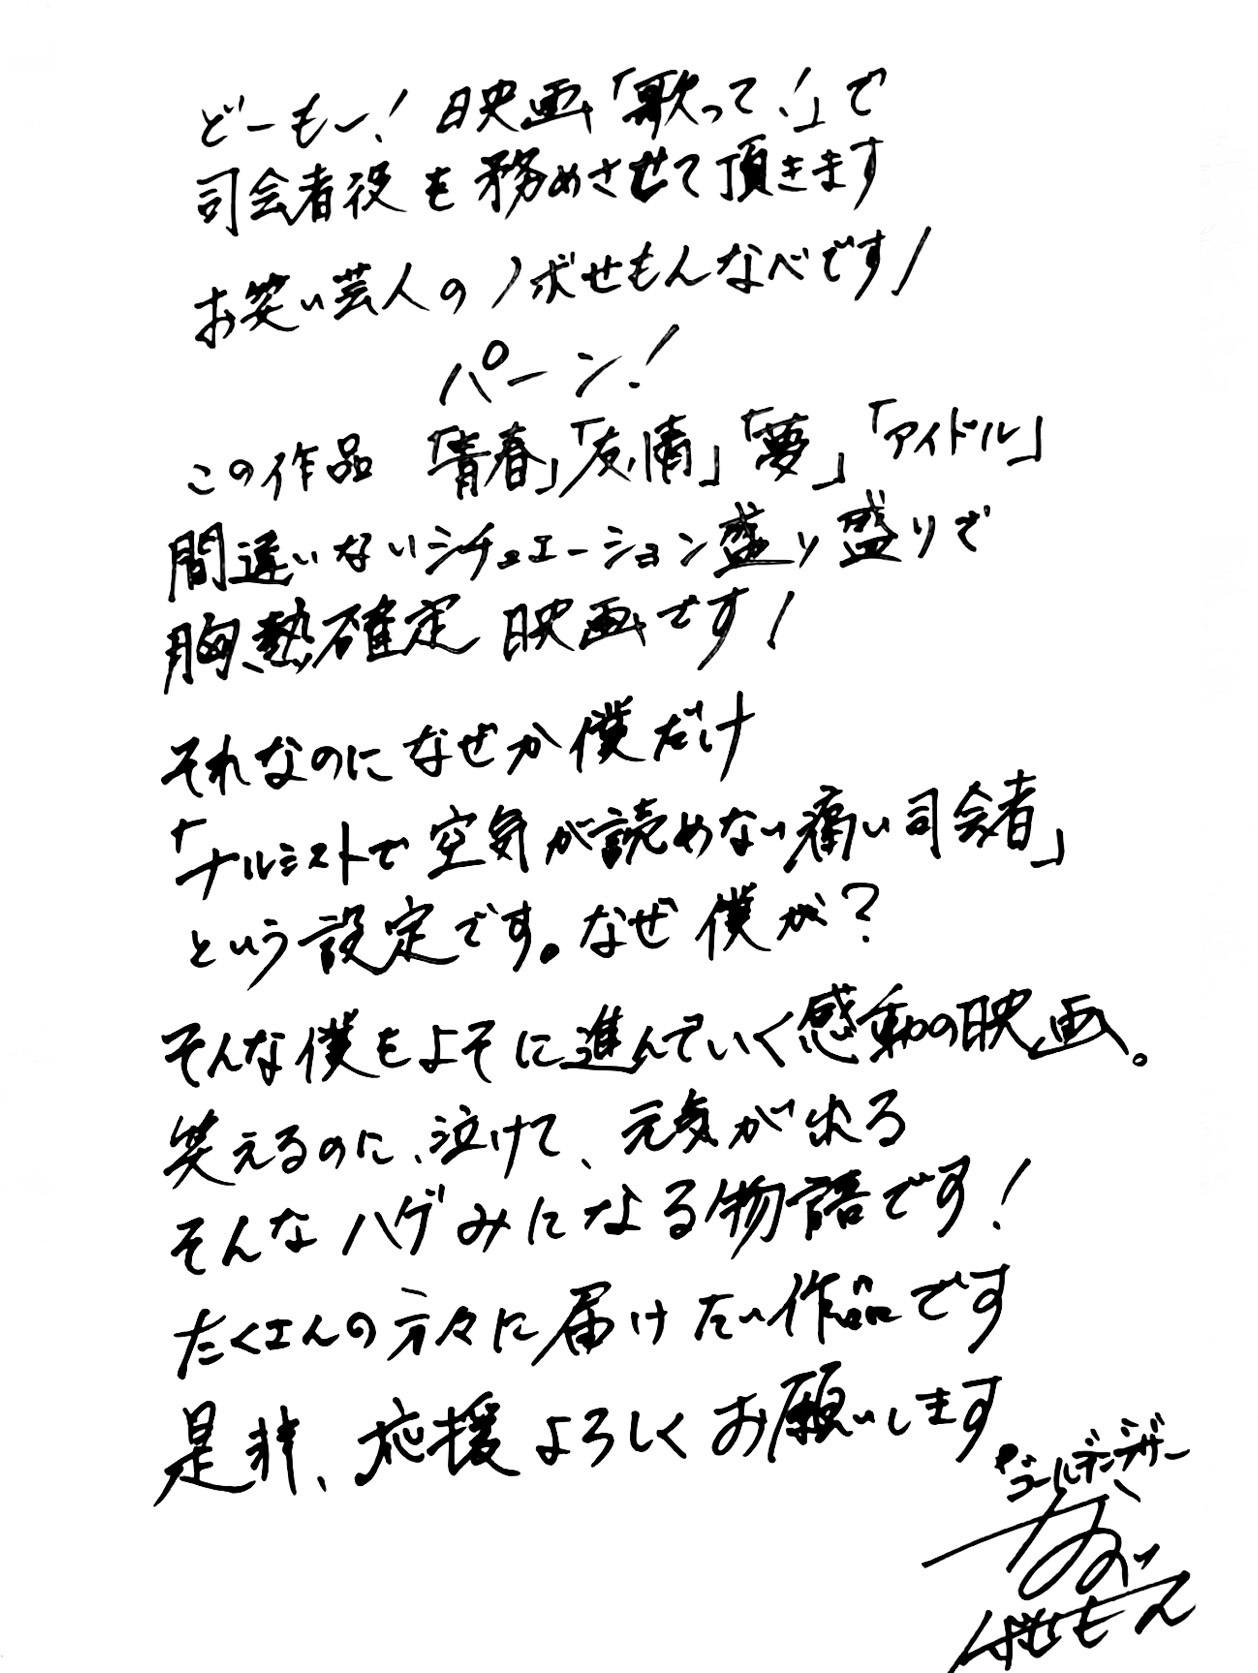 どーもー!映画「歌って!」で
司会者役を務めさせて頂きます
お笑い芸人のノボせもんなべです!
パーン!
この作品「青春」「友情」「夢」「アイドル」
間違いないシチュエーション盛り盛りで
胸熱確定映画です!
それなのになぜか僕だけ
「ナルシストで空気が読めない痛い司会者」
という設定です。なぜ僕が?
そんな僕をよそに進んでいく感動の映画。
笑えるのに、泣けて、元気が出る
そんなハゲみになる物語です!
たくさんの方々に届けたい作品です
是非、応援よろしくお願いします